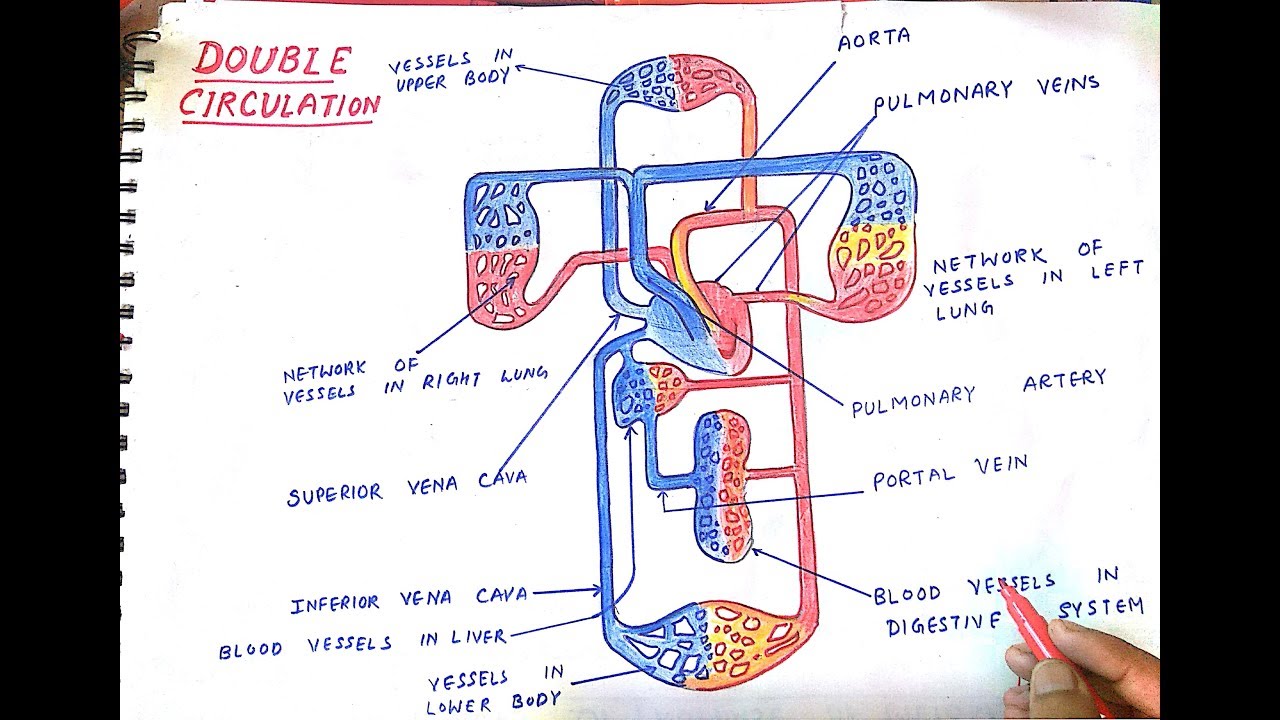 DOUBLE
CIRCULATION
VESSELS IN
UPPER BODY
AORTA
PULMONARY VEINS
NETWORK OF
VESSELS IN LEFT
LUNG
NETWORK OF
VESSELS IN RIGHT LUNG
PULMONARY ARTERY
SUPERIOR VENA CAVA
PORTAL VEIN
INFERIOR VENA CAVA
BLOOD VESSELS IN
DIGESTIVE SYSTEM
BLOOD VESSELS IN LIVER
VESSELS IN
LOWER BODY